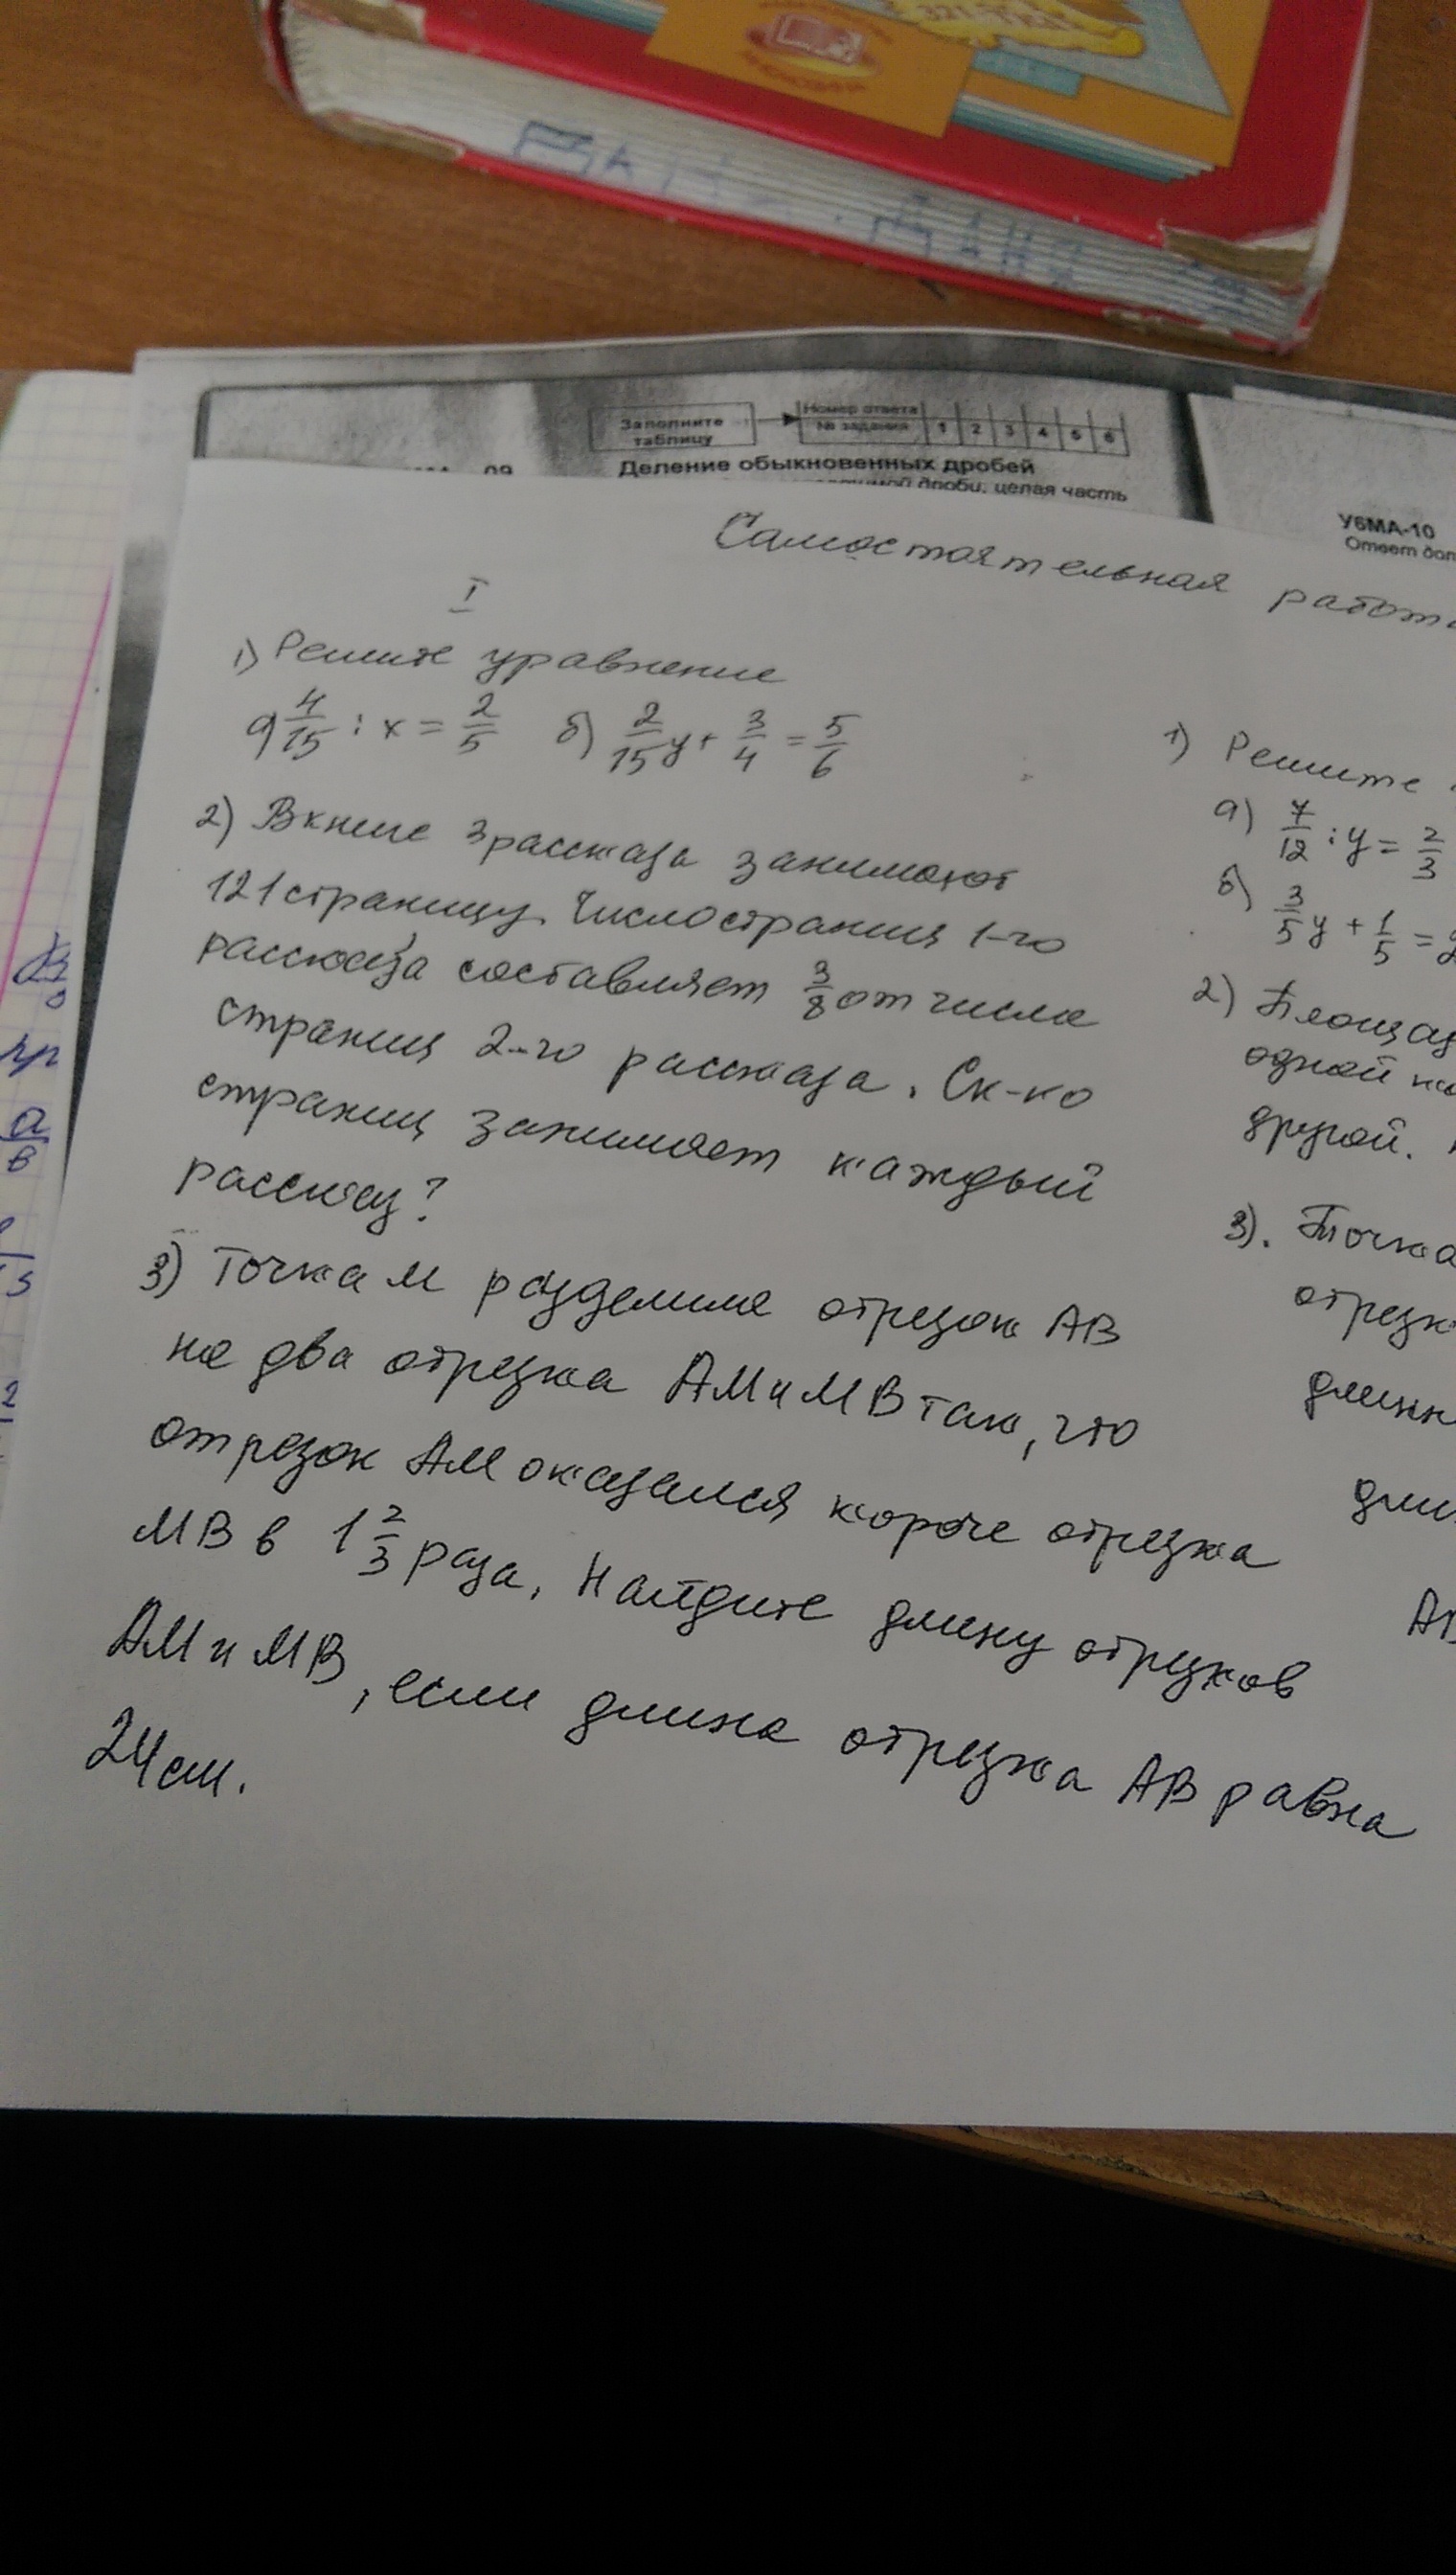 Заполните таблицу
Номер ответа
№ задания 1 2 3 4 5 6
Деление обыкновенных дробей
дроби, целая часть
У6МА-10
Ответ
Самостоятельная
I
1) Решите уравнение
а) 4/15 : x = 2/5 б) 2/15 y + 3/4 = 5/6
2) В книге 3 рассказа занимают
121 страницу. Число страниц 1-го
рассказа составляет 3/8 от числа
страниц 2-го рассказа. Ск-ко
страниц занимает каждый
рассказ?
3) Точка М разделила отрезок АВ
на два отрезка АМ и МВ так, что
отрезок АМ оказался короче отрезка
МВ в 1 2/3 раза. Найдите длину отрезков
АМ и МВ, если длина отрезка АВ равна
24 см.
1) Решите
а) 7/12 : y = 2/3
б) 3/5 y + 1/5 =
2)
одной
другой.
3). Точка